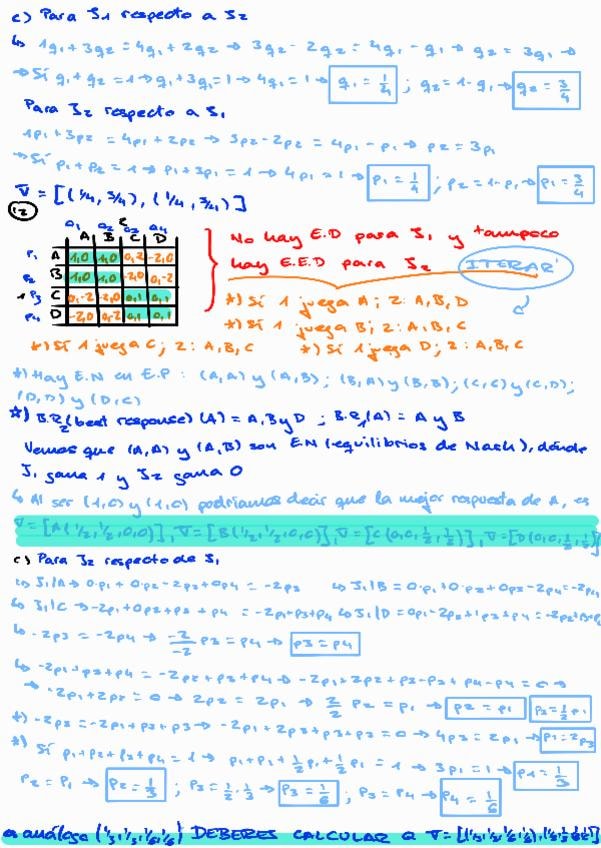 c) Para J1 respecto a J2
↳ 1q1 + 3q2 = 4q1 + 2q2 → 3q2 - 2q2 = 4q1 - q1 → q2 = 3q1 →
→ Si q1 + q2 = 1 → q1 + 3q1 = 1 → 4q1 = 1 → q1 = 1/4 ; q2 = 1 - q1 → q2 = 3/4
Para J2 respecto a J1
1p1 + 3p2 = 4p1 + 2p2 → 3p2 - 2p2 = 4p1 - p1 → p2 = 3p1
→ Si p1 + p2 = 1 → p1 + 3p1 = 1 → 4p1 = 1 → p1 = 1/4 ; p2 = 1 - p1 → p1 = 3/4
∇ = [(1/4, 3/4), (1/4, 3/4)]
12
q1 q2 q3 q4
A B C D
P1 A 1,0 1,0 0,-2 -2,0
P2 B 1,0 1,0 -2,0 0,-2
1 P3 C 0,-2 -2,0 0,1 0,1
P4 D -2,0 0,-2 0,1 0,1
No hay E.D para J1 y tampoco
hay E.E.D para J2 ITERAR
*) Si 1 juega A; 2: A, B, D
*) Si 1 juega B; 2: A, B, C
*) Si 1 juega C; 2: A, B, C *) Si 1 juega D; 2: A, B, C
*) Hay E.N en E.P: (A,A) y (A,B); (B,A) y (B,B); (C,C) y (C,D);
(D,D) y (D,C)
*) B.R2 (best response) (A) = A, B y D ; B.R1(A) = A y B
Vemos que (A,A) y (A,B) son EN (equilibrios de Nash), dónde
J1 gana 1 y J2 gana 0
↳ Al ser (1,0) y (1,0) podríamos decir que la mejor respuesta de A, es
∇ = [A(1/2, 1/2, 0, 0)], ∇ = [B(1/2, 1/2, 0, 0)], ∇ = [C(0, 0, 1/2, 1/2)], ∇ = [D(0, 0, 1/2, 1/2)]
c) Para J2 respecto de J1
↳ J1/A → 0·p1 + 0·p2 - 2p3 + 0p4 = -2p3 ↳ J1/B = 0·p1 + 0·p2 + 0p3 - 2p4 = -2p4
↳ J1/C → -2p1 + 0p2 + p3 + p4 = -2p1 + p3 + p4 ↳ J1/D = 0p1 - 2p2 + 1p3 + p4 = -2p2 + p3 + p4
↳ -2p3 = -2p4 → -2/-2 p3 = p4 → p3 = p4
↳ -2p1 + p3 + p4 = -2p2 + p3 + p4 → -2p1 + 2p2 + p3 - p3 + p4 - p4 = 0 →
→ -2p1 + 2p2 = 0 → 2p2 = 2p1 → 2/2 p2 = p1 → p2 = p1 p3 = 1/2 p1
*) -2p3 = -2p1 + p3 + p3 → -2p1 + 2p3 + p3 + p3 = 0 → 4p3 = 2p1 → p1 = 2p3
*) Si p1 + p2 + p3 + p4 = 1 → p1 + p1 + 1/2 p1 + 1/2 p1 = 1 → 3p1 = 1 → p1 = 1/3
p2 = p1 → p2 = 1/3 ; p3 = 1/2 · 1/3 → p3 = 1/6 ; p3 = p4 → p4 = 1/6
análoga (1/3, 1/3, 1/6, 1/6) DEBERES CALCULAR